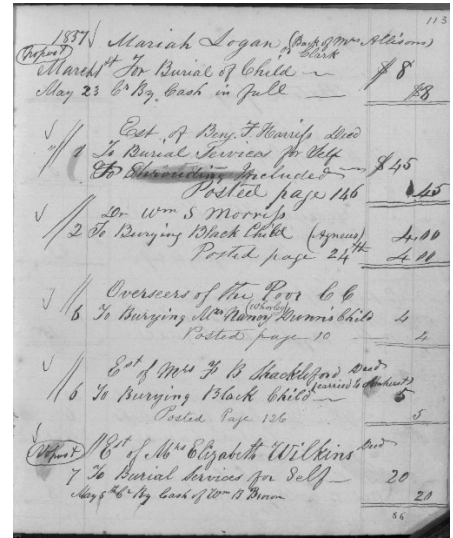 113
1857 Mariah Logan (Back of Mrs Allisons)
on Clark
No post
March 1st For Burial of Child — $8
May 23 Cr By Cash in full $8
Est of Benj. F Harriss Decd
" // 1 To Burial Services for Self
To Shrouding Included — $45
Posted page 146 45
Dr Wm S Morriss
// 2 To Burying Black Child (Agness) 4.00
Posted page 24th 4 00
Overseers of the Poor C C
(Whorley)
// 6 To Burying Mrs Nancy Dunns Child 4
Posted page 10 — 4
Est of Mrs F B Shackleford Decd
(carried to Amherst)
// 6 To Burying Black Child — 5
Posted Page 126 5
No post // Est of Mrs Elizabeth Wilkins Decd
7 To Burial Services for Self — 20
May 5th Cr By Cash of Wm B Brown 20
86